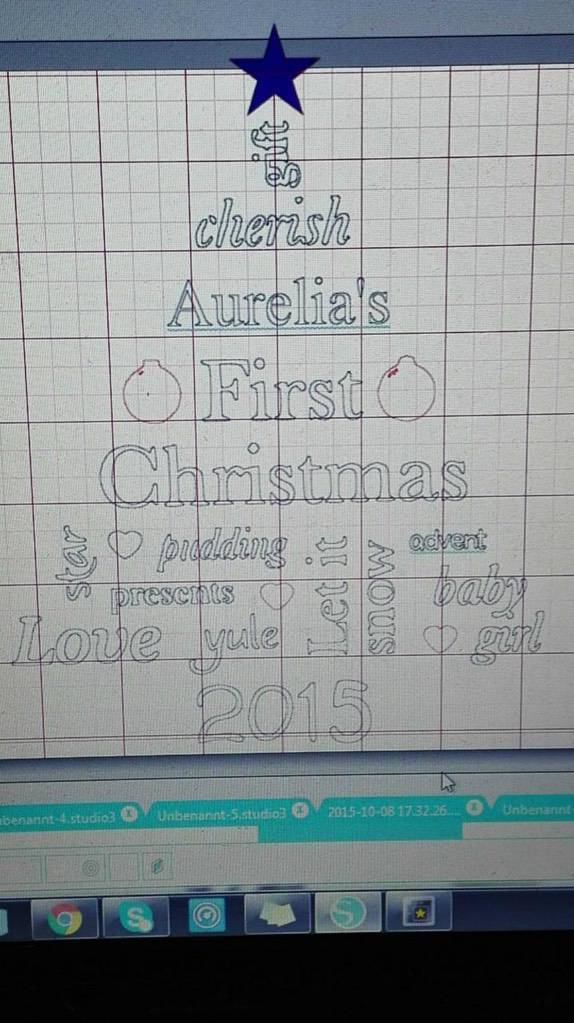 gift
cherish
Aurelia's
First
Christmas
star
pudding
Let it
snow
advent
presents
baby
Love
yule
girl
2015
Unbenannt-5.studio3
2015-10-08 17.32.26....
Unbenannt